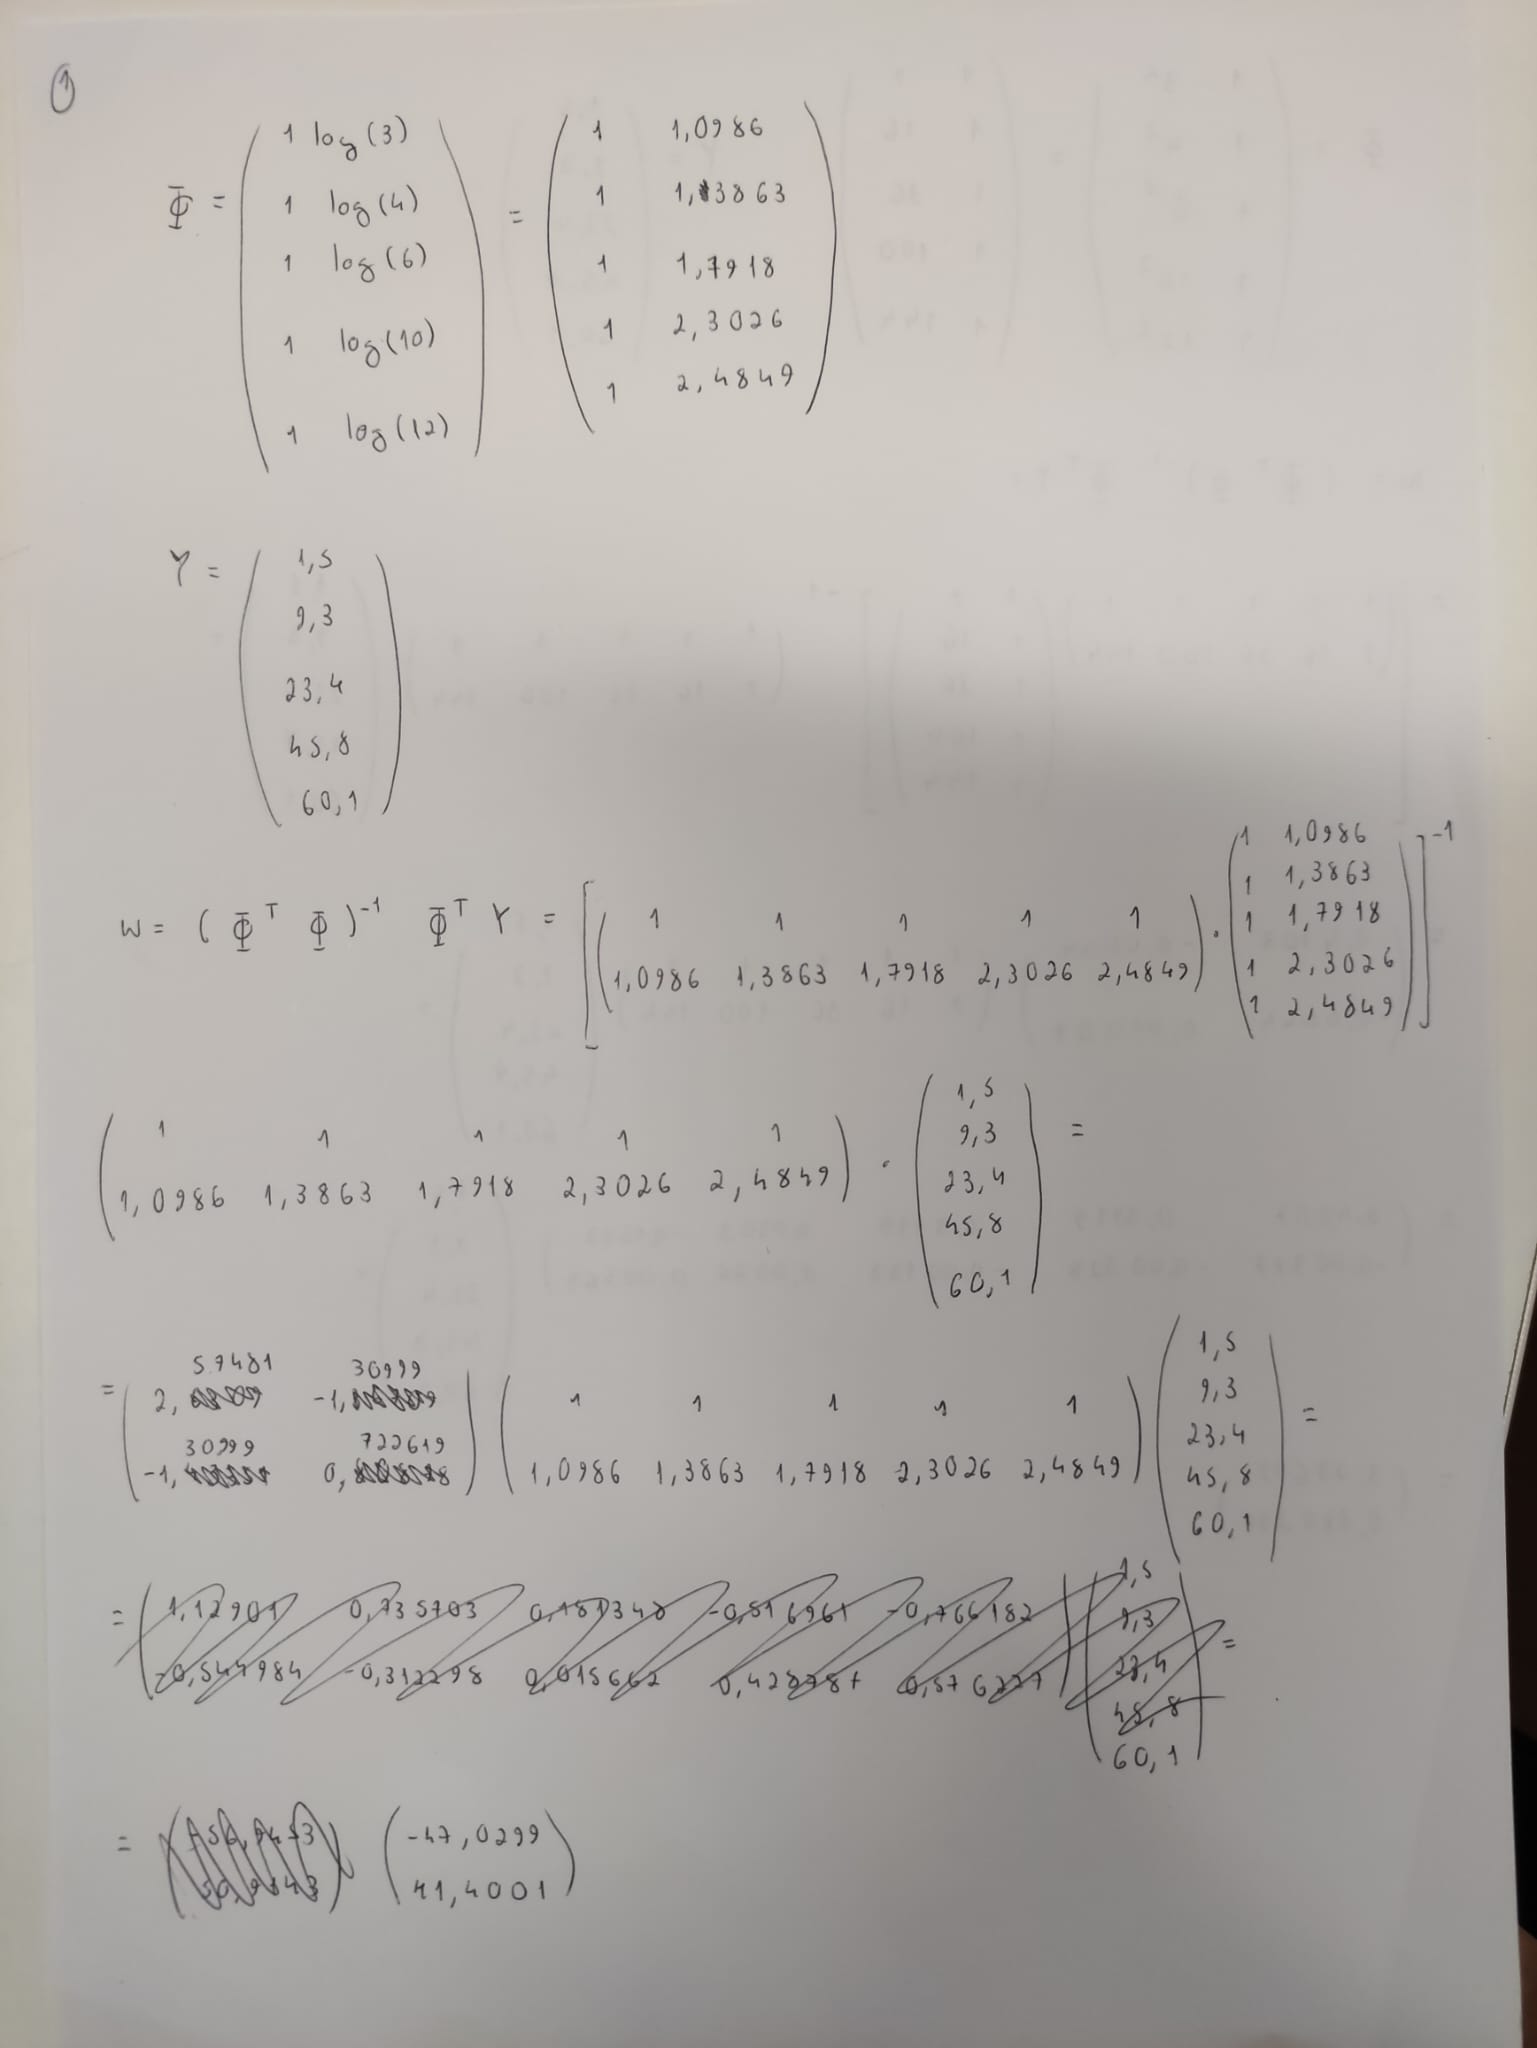 1
Φ = ( 1 log(3) ) = ( 1 1,0986 )
1 log(4) 1 1,3863
1 log(6) 1 1,7918
1 log(10) 1 2,3026
1 log(12) 1 2,4849
Y = ( 1,5
9,3
23,4
45,8
60,1 )
W = ( Φ^T Φ )^-1 Φ^T Y = [ ( 1 1 1 1 1
1,0986 1,3863 1,7918 2,3026 2,4849 ) · ( 1 1,0986
1 1,3863
1 1,7918
1 2,3026
1 2,4849 ) ]^-1
( 1 1 1 1 1
1,0986 1,3863 1,7918 2,3026 2,4849 ) · ( 1,5
9,3
23,4
45,8
60,1 ) =
= ( 2,57481 -1,30999
-1,30999 0,722619 ) ( 1 1 1 1 1
1,0986 1,3863 1,7918 2,3026 2,4849 ) ( 1,5
9,3
23,4
45,8
60,1 ) =
= ( 1,12901 0,735703 0,181348 -0,516961 -0,766182
-0,544984 -0,312298 0,015662 ) ( 1,5
9,3
23,4
45,8
60,1 ) =
= ( -47,0299
41,4001 )